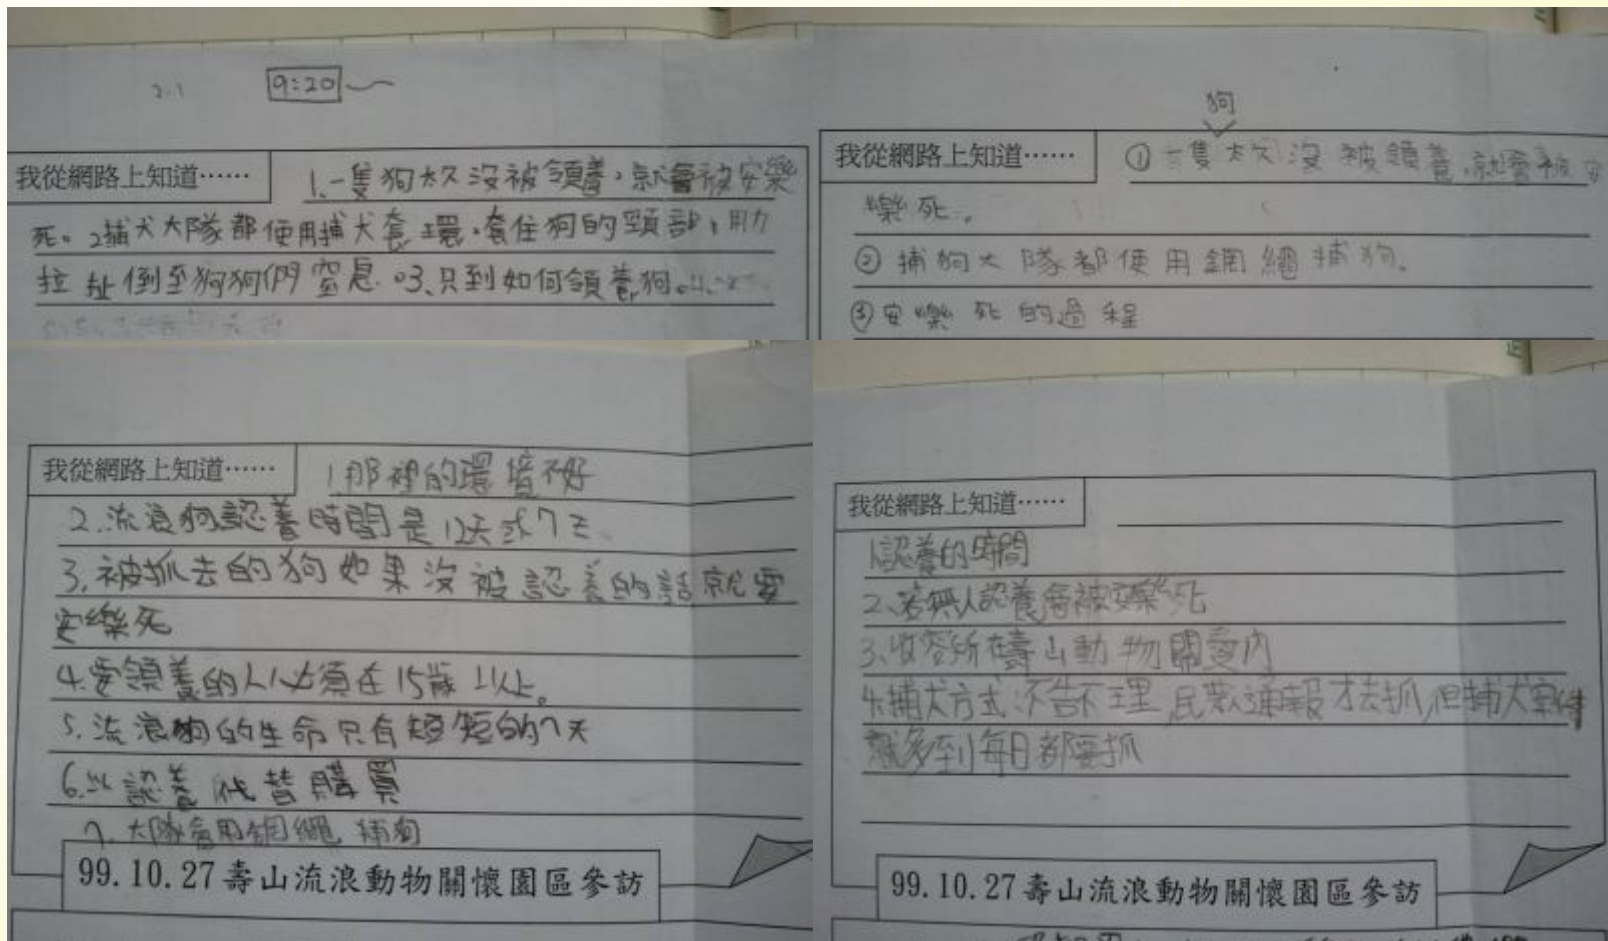 9:20
我從網路上知道…… 1.一隻狗太久沒被領養,就會被安樂
死。2捕犬大隊都使用捕犬套環,套住狗的頸部,用力
拉扯倒至狗狗們窒息。3.只到如何領養狗。4.
狗
我從網路上知道…… ①一隻太久沒被領養,就會被安
樂死。
②捕狗大隊都使用鋼繩捕狗。
③安樂死的過程
我從網路上知道…… 1.那裡的環境不好
2.流浪狗認養時間是12天或7天
3.被抓去的狗如果沒被認養的話就要
安樂死
4.要領養的人必須在15歲以上。
5.流浪狗的生命只有短短的7天
6.以認養代替購買
7.大隊會用鋼繩捕狗
99.10.27壽山流浪動物關懷園區參訪
我從網路上知道……
1.認養的時間
2.若無人認養會被安樂死
3.收容所在壽山動物關愛內
4.捕犬方式:不告不理,民眾通報才去抓,但捕犬案件
就多到每日都要抓
99.10.27壽山流浪動物關懷園區參訪